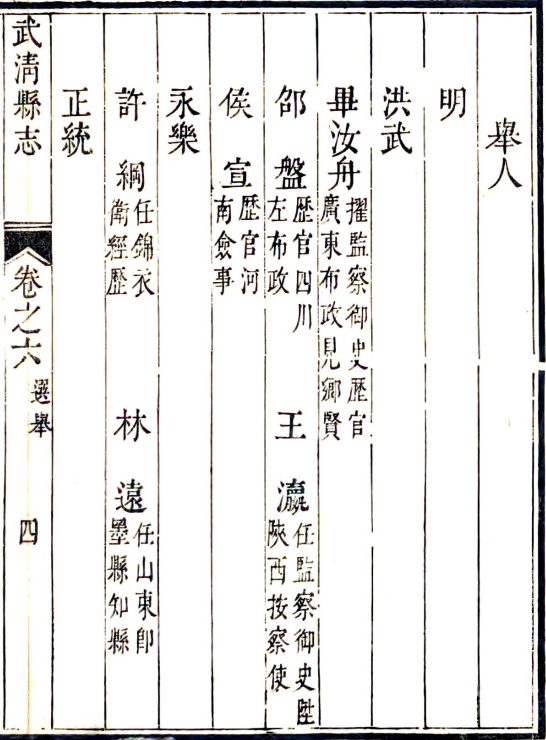 舉人
明
洪武
畢汝舟 擢監察御史歷官
廣東布政見鄉賢
邵盤 歷官四川
左布政
王瀛 任監察御史陞
陝西按察使
侯宣 歷官河
南僉事
永樂
許綱 任錦衣
衛經歷
林遠 任山東卽
墨縣知縣
正統
武淸縣志 卷之六 選舉 四